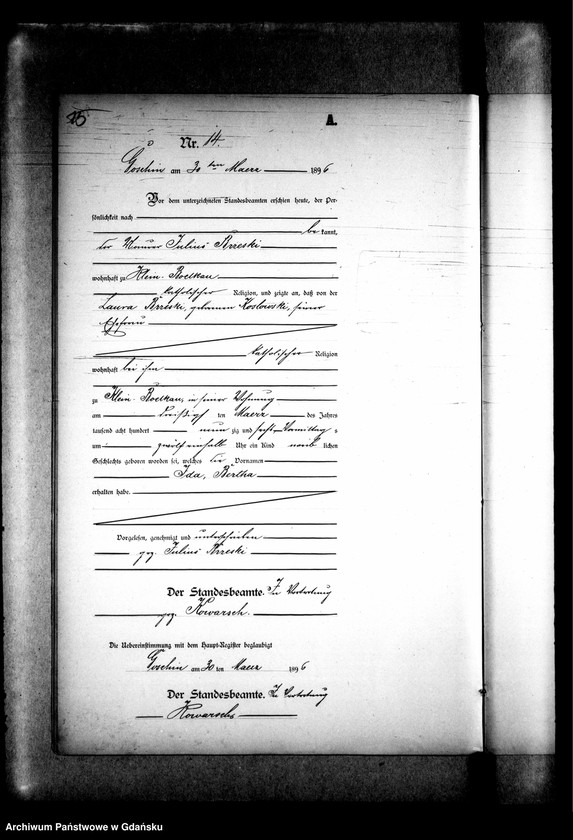 15.
A.
Nr. 14.
Goschin am 30 ten Maerz 1896
Vor dem unterzeichneten Standesbeamten erschien heute, der Per-
sönlichkeit nach
be kannt,
der Maurer Julius
wohnhaft zu Klein-Boelkau
katholischer Religion, und zeigte an, daß von der
Laura geborenen Koslowski, seiner
Ehefrau
katholischer Religion
wohnhaft bei ihm
zu Klein-Boelkau, in seiner Wohnung
am ten Maerz des Jahres
tausend acht hundert neun zig und sechs Vormittag s
um Uhr ein Kind weib lichen
Geschlechts geboren worden sei, welches die Vornamen
Ida, Bertha
erhalten habe.
Vorgelesen, genehmigt und unterschrieben
gez. Julius
Der Standesbeamte. In Vertretung
gez. Kowarsch.
Die Uebereinstimmung mit dem Haupt-Register beglaubigt
Goschin am 30 ten Maerz 1896
Der Standesbeamte. In Vertretung
Kowarsch
Archiwum Państwowe w Gdańsku